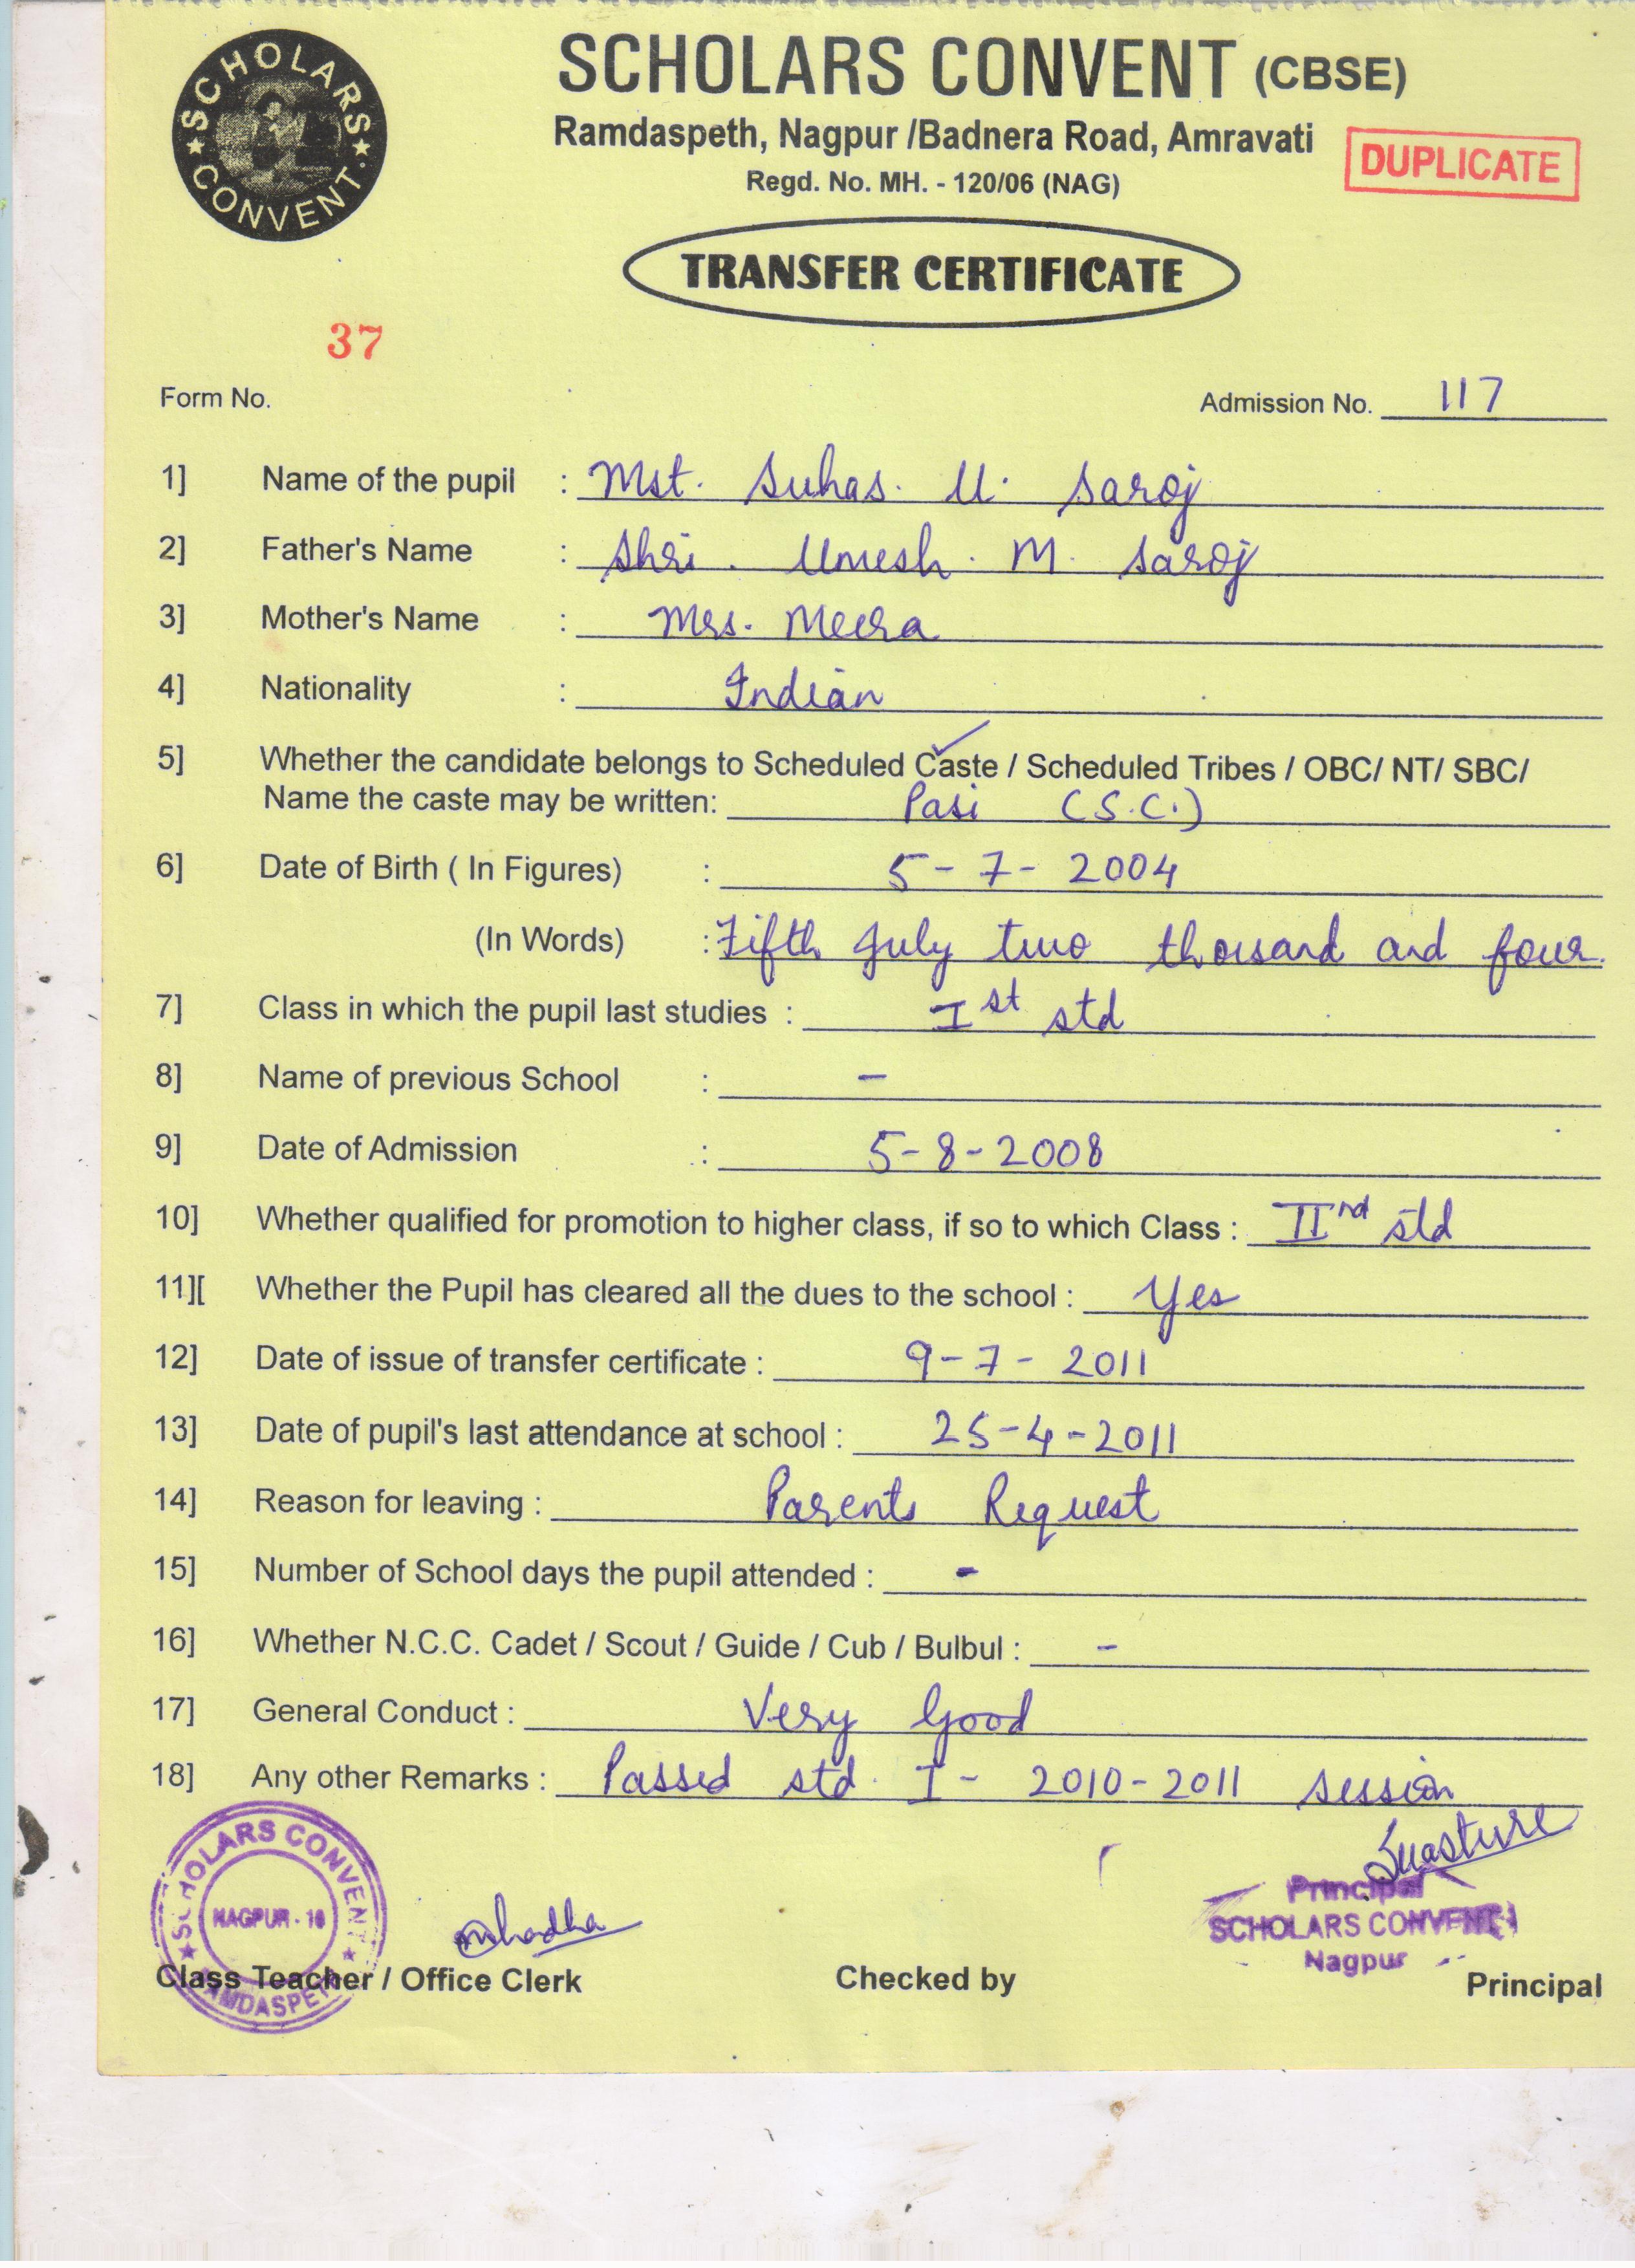 SCHOLARS CONVENT
SCHOLARS CONVENT (CBSE)
Ramdaspeth, Nagpur /Badnera Road, Amravati
Regd. No. MH. - 120/06 (NAG)
DUPLICATE
TRANSFER CERTIFICATE
37
Form No. Admission No. 117
1] Name of the pupil : Mst. Suhas. U. Saroj
2] Father's Name : Shri. Umesh. M. Saroj
3] Mother's Name : Mrs. Meera
4] Nationality : Indian
5] Whether the candidate belongs to Scheduled Caste / Scheduled Tribes / OBC/ NT/ SBC/
Name the caste may be written: Pasi (S.C.)
6] Date of Birth ( In Figures) : 5-7-2004
(In Words) : Fifth July two thousand and four.
7] Class in which the pupil last studies : Ist std
8] Name of previous School : -
9] Date of Admission : 5-8-2008
10] Whether qualified for promotion to higher class, if so to which Class : IInd std
11][ Whether the Pupil has cleared all the dues to the school : Yes
12] Date of issue of transfer certificate : 9-7-2011
13] Date of pupil's last attendance at school : 25-4-2011
14] Reason for leaving : Parents Request
15] Number of School days the pupil attended : -
16] Whether N.C.C. Cadet / Scout / Guide / Cub / Bulbul : -
17] General Conduct : Very Good
18] Any other Remarks : Passed std. I - 2010-2011 session
SCHOLARS CONVENT
NAGPUR - 10
RAMDASPETH
Principal
SCHOLARS CONVENT
Nagpur
Class Teacher / Office Clerk Checked by Principal